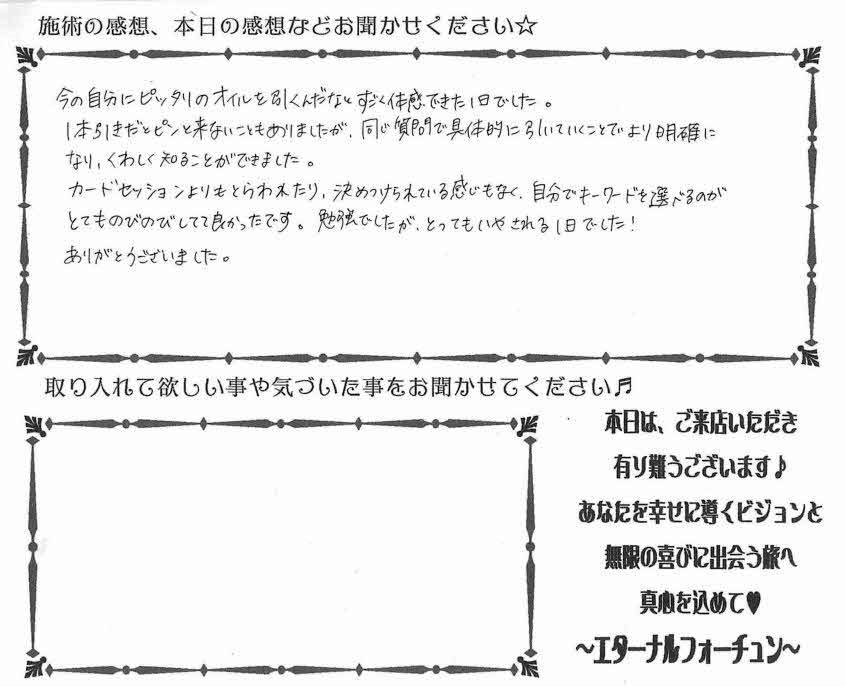 施術の感想、本日の感想などお聞かせください☆
今の自分にピッタリのオイルを引くんだなとすごく体感できた1日でした。
1本引きだとピンと来ないこともありましたが、同じ質問で具体的に引いていくことでより明確に
なり、くわしく知ることができました。
カードセッションよりもとらわれたり、決めつけられている感じもなく、自分でキーワードを選べるのが
とてものびのびしてて良かったです。勉強でしたが、とってもいやされる1日でした！
ありがとうございました。
取り入れて欲しい事や気づいた事をお聞かせてください♬
本日は、ご来店いただき
有り難うございます♪
あなたを幸せに導くビジョンと
無限の喜びに出会う旅へ
真心を込めて♥
～エターナルフォーチュン～